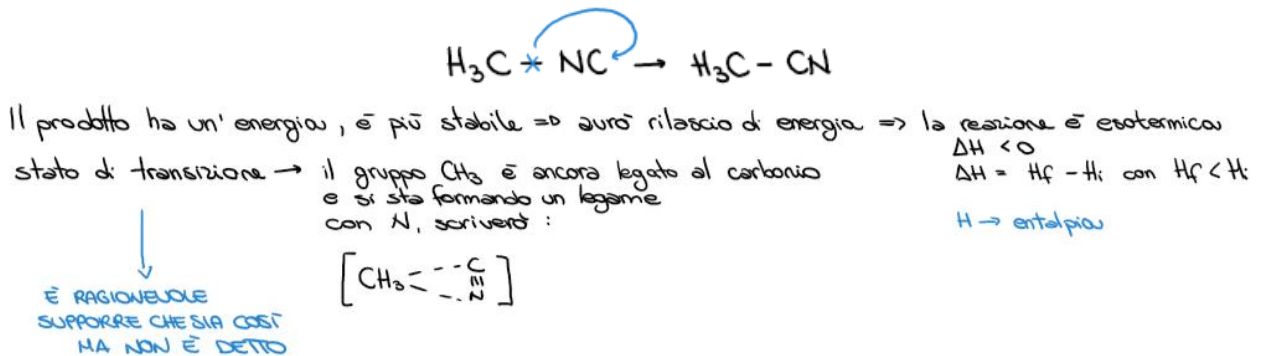 H₃C + NC → H₃C - CN
Il prodotto ha un' energia, è più stabile => avrò rilascio di energia => la reazione è esotermica
ΔH < 0
stato di transizione → il gruppo CH₃ è ancora legato al carbonio
ΔH = Hf - Hi con Hf < Hi
e si sta formando un legame
con N, scriverò :
H → entalpia
[CH₃ C≡N]
È RAGIONEVOLE
SUPPORRE CHE SIA COSÌ
MA NON È DETTO